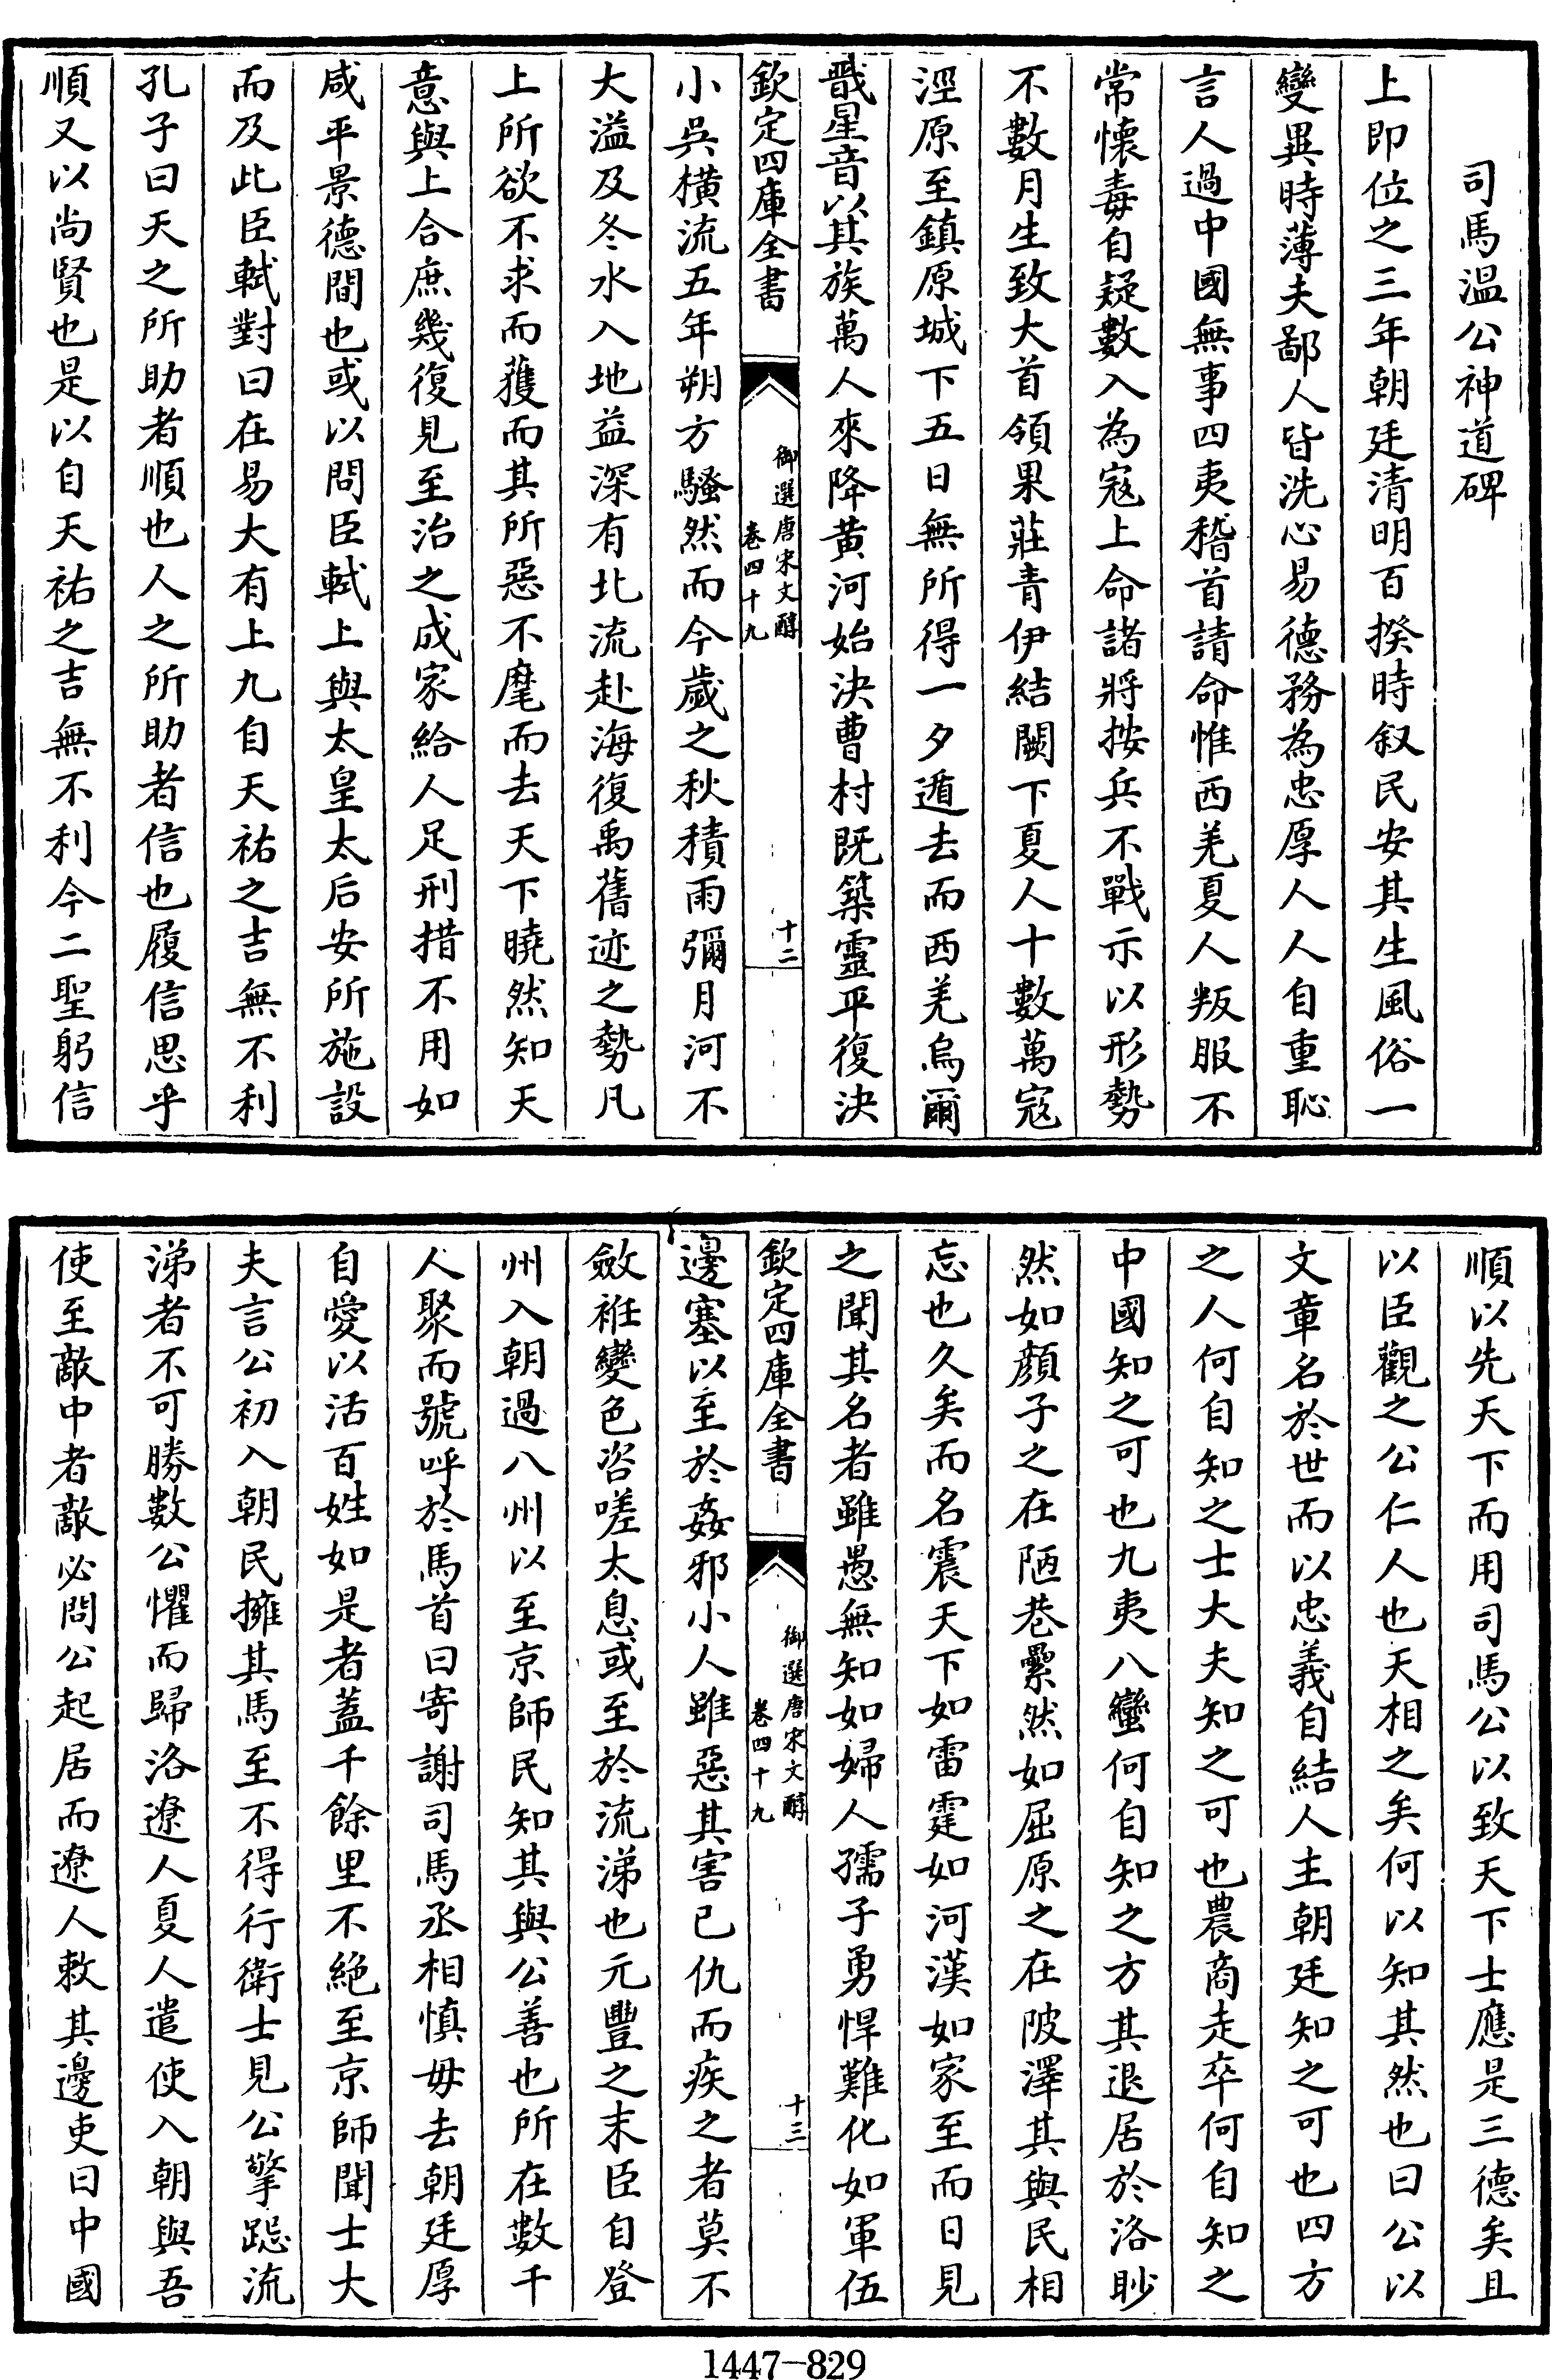 司馬温公神道碑
上即位之三年朝廷清明百揆時叙民安其生風俗一
變異時薄夫鄙人皆洗心易德務為忠厚人人自重恥
言人過中國無事四夷稽首請命惟西羌夏人叛服不
常懷毒自疑數入為寇上命諸將按兵不戰示以形勢
不數月生致大首領果莊青伊結闕下夏人十數萬寇
涇原至鎮原城下五日無所得一夕遁去而西羌烏爾
戩星音以其族萬人來降黄河始決曹村既築靈平復決
欽定四庫全書
御選唐宋文醇
卷四十九
十二
小吳横流五年朔方騷然而今歲之秋積雨彌月河不
大溢及冬水入地益深有北流赴海復禹舊迹之勢凡
上所欲不求而獲而其所惡不麾而去天下曉然知天
意與上合庶幾復見至治之成家給人足刑措不用如
咸平景德間也或以問臣軾上與太皇太后安所施設
而及此臣軾對曰在易大有上九自天祐之吉無不利
孔子曰天之所助者順也人之所助者信也履信思乎
順又以尚賢也是以自天祐之吉無不利今二聖躬信
順以先天下而用司馬公以致天下士應是三德矣且
以臣觀之公仁人也天相之矣何以知其然也曰公以
文章名於世而以忠義自結人主朝廷知之可也四方
之人何自知之士大夫知之可也農商走卒何自知之
中國知之可也九夷八蠻何自知之方其退居於洛眇
然如顔子之在陋巷纍然如屈原之在陂澤其與民相
忘也久矣而名震天下如雷霆如河漢如家至而日見
之聞其名者雖愚無知如婦人孺子勇悍難化如軍伍
欽定四庫全書
御選唐宋文醇
卷四十九
十三
邊塞以至於姦邪小人雖惡其害已仇而疾之者莫不
斂袵變色咨嗟太息或至於流涕也元豐之末臣自登
州入朝過八州以至京師民知其與公善也所在數千
人聚而號呼於馬首曰寄謝司馬丞相慎毋去朝廷厚
自愛以活百姓如是者蓋千餘里不絶至京師聞士大
夫言公初入朝民擁其馬至不得行衛士見公擎跽流
涕者不可勝數公懼而歸洛遼人夏人遣使入朝與吾
使至敵中者敵必問公起居而遼人敕其邊吏曰中國
1447-829